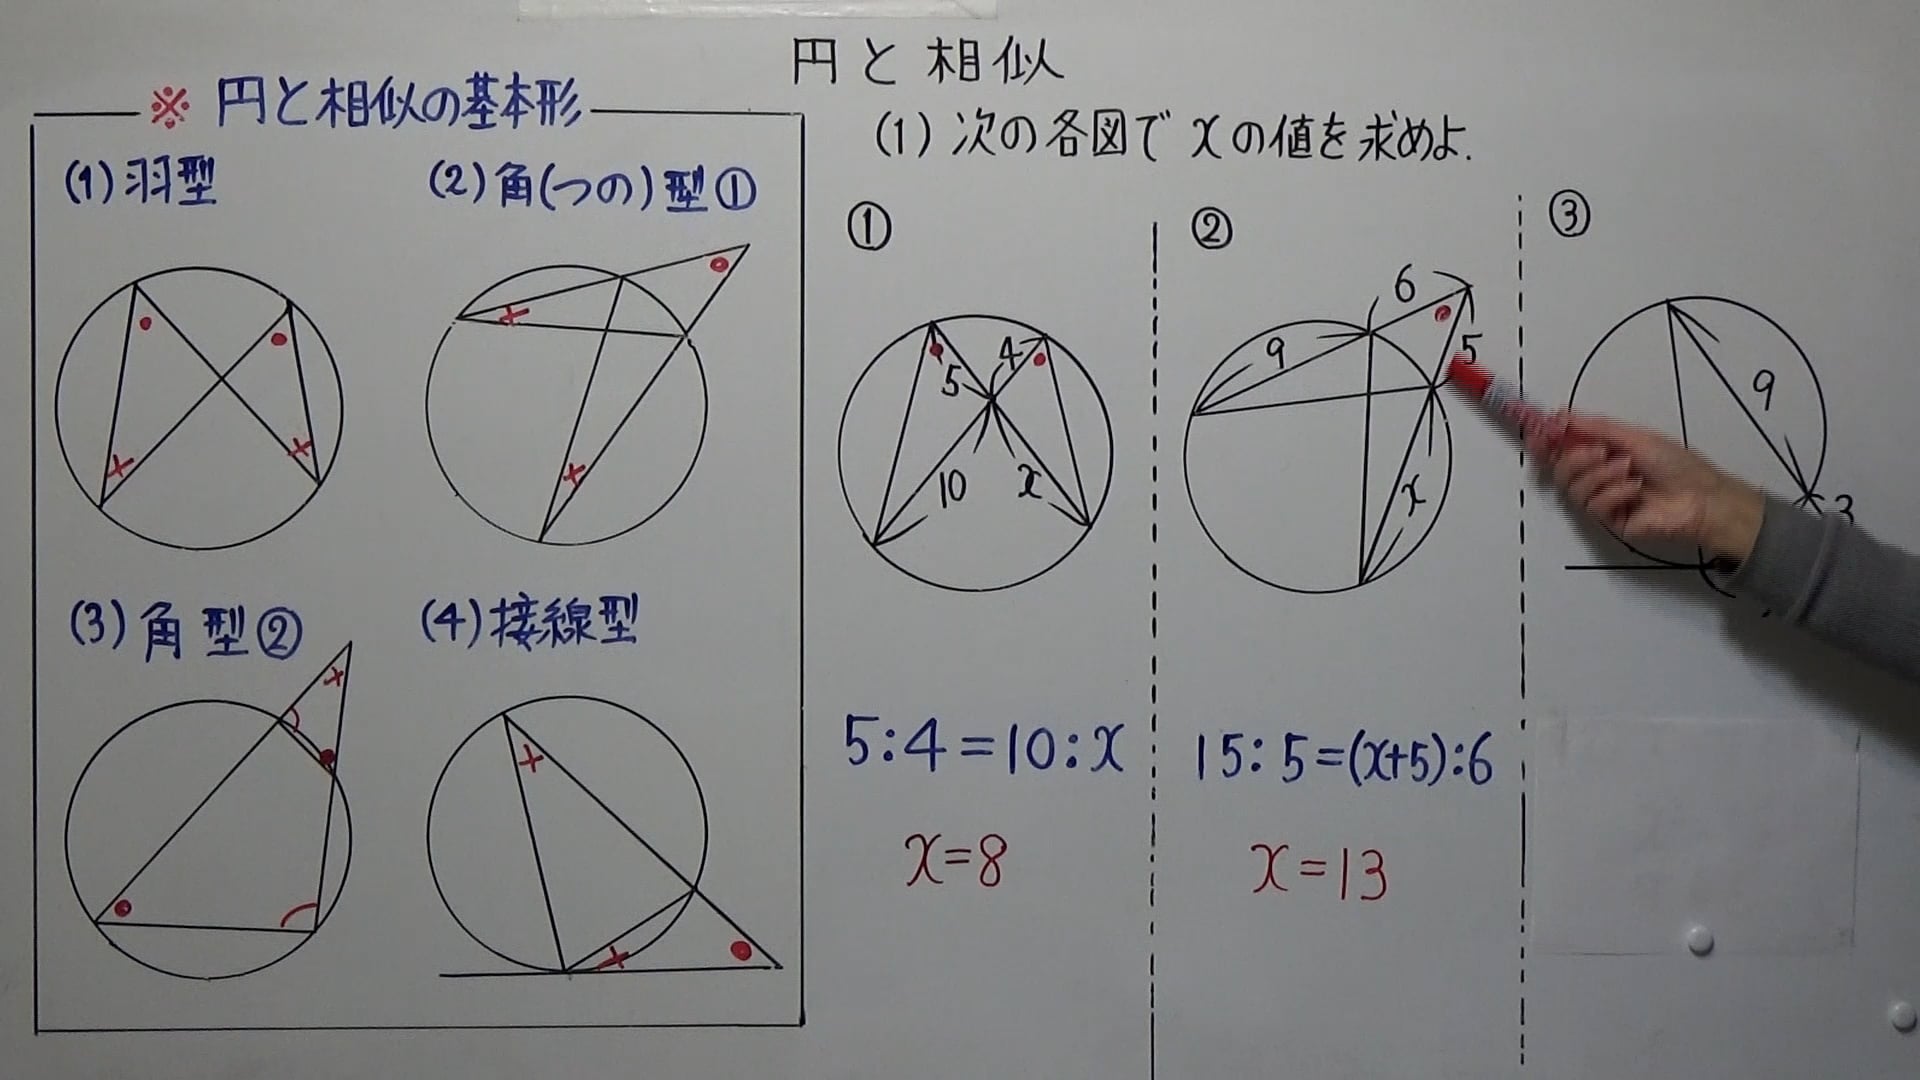 円と相似
※ 円と相似の基本形
(1) 羽型
(2) 角(つの)型①
(3) 角型②
(4) 接線型
(1) 次の各図でxの値を求めよ.
①
5
4
10
x
5:4=10:x
x=8
②
6
9
5
x
15:5=(x+5):6
x=13
③
9
3